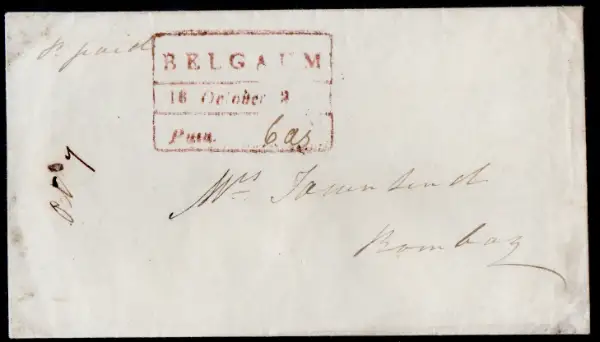 P. paid
BELGAUM
16 October
Paid. 6 as
Mrs Townsend
Bombay